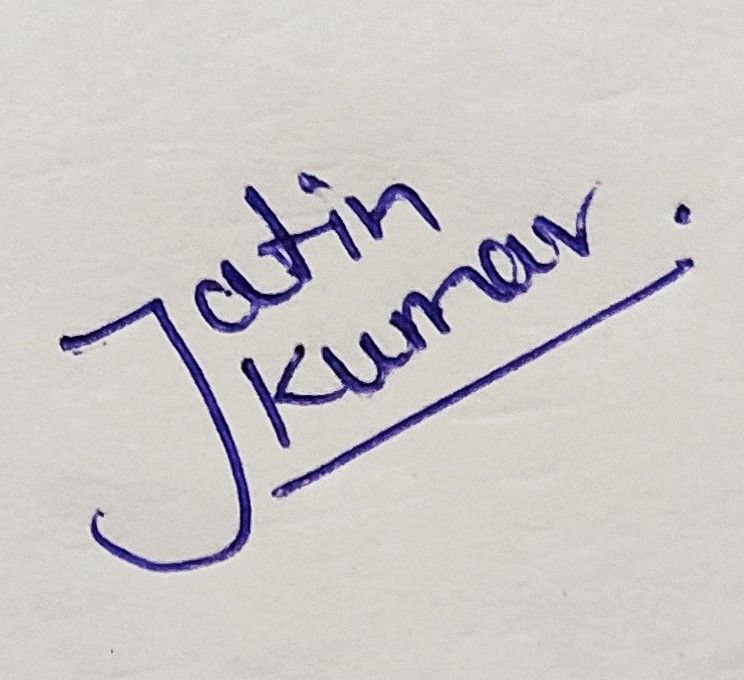 Jatin
Kumar.